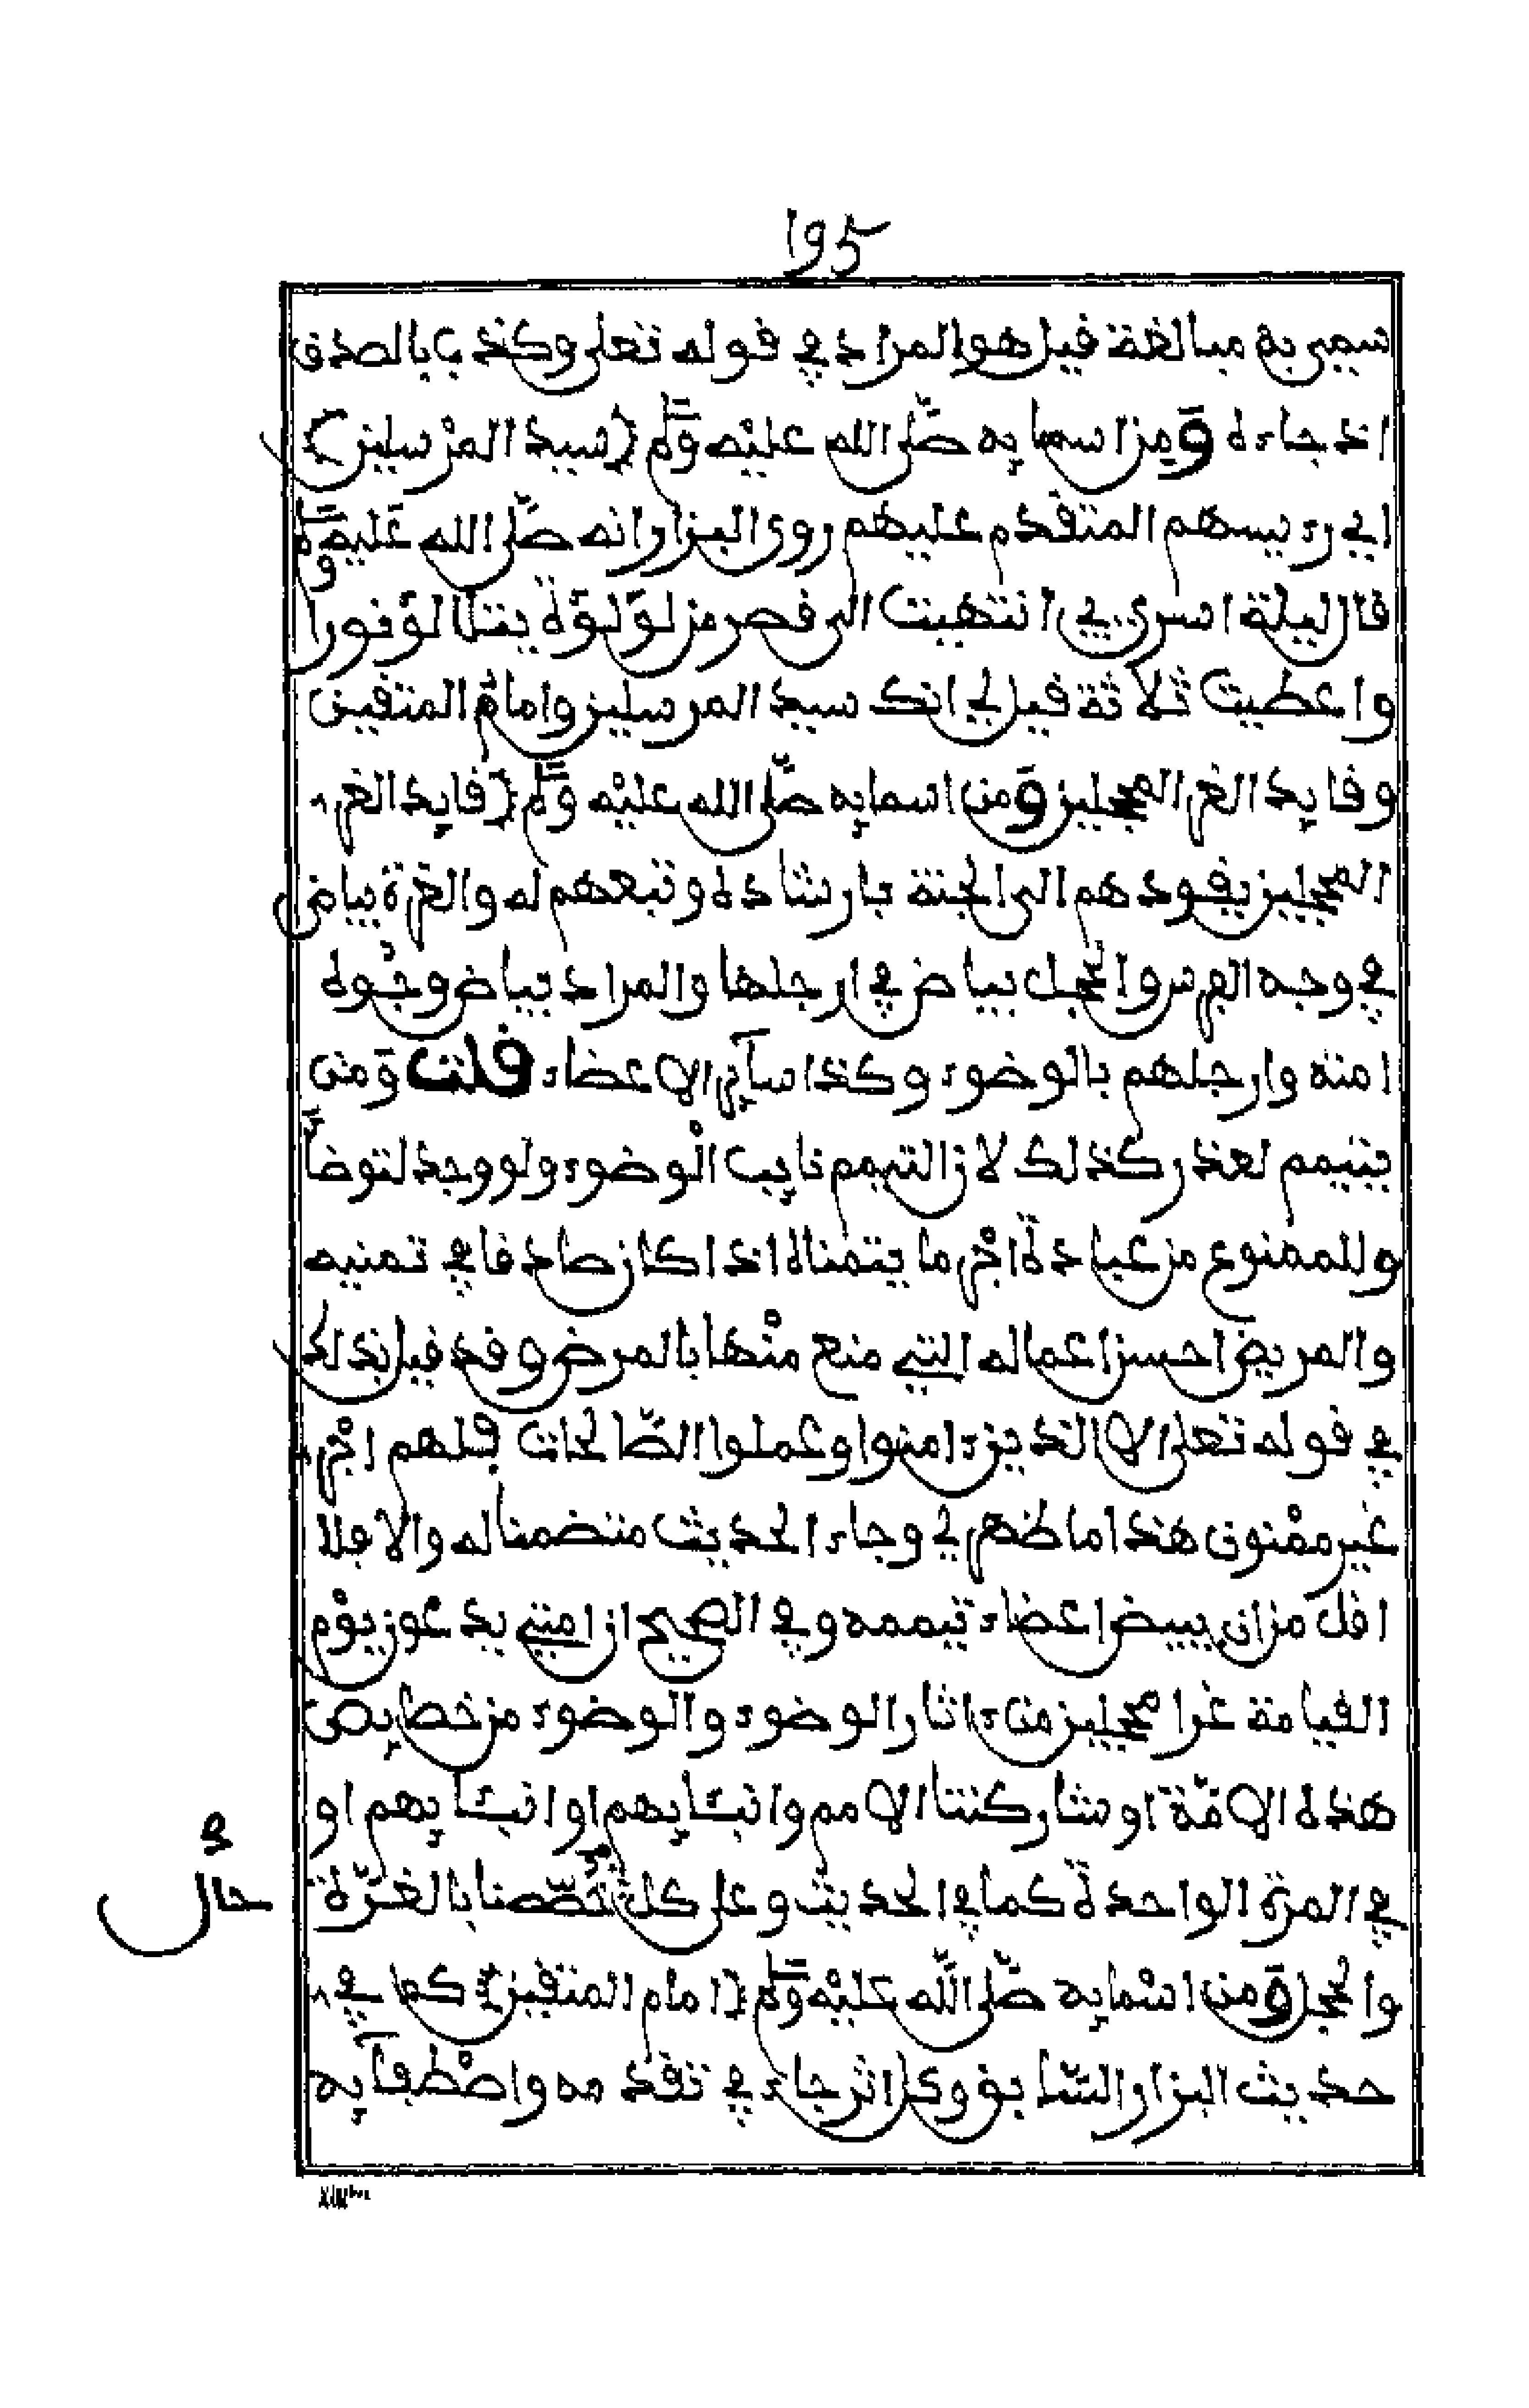 195
سمي به مبالغة فيل هو المراد في قوله تعلى وكذب بالصدق
اذ جاءه ومن اسمايه صلى الله عليه وسلم (سيد المرسلين)
اي رءيسهم المتقدم عليهم روى البزار انه صلى الله عليه وسلم
قال ليلة اسري بي انتهيت الى قصر من لؤلؤة يتلالؤ نورا
واعطيت ثلاثة قيل لي انك سيد المرسلين وامام المتقين
وقايد الغر المحجلين ومن اسمايه صلى الله عليه وسلم (قايد الغر
المحجلين يقودهم الى الجنة بارشاده وتبعهم له والغرة بياض
في وجه الفرس والحجل بياض في ارجلها والمراد بياض وجوه
امته وارجلهم بالوضوء وكذا ساير الاعضاء قلت ومن
يتيمم لعذر كذلك لان التيمم نايب الوضوء ولو وجد لتوضأ
وللممنوع من عبادة اجر ما يتمناه اذا كان صادقا في تمنيه
والمريض احسن اعماله التي منع منها بالمرض وقد قيل بذلك
في قوله تعلى الا الذين ءامنوا وعملوا الصالحات فلهم اجر
غير ممنون هذا ما ظهر لي وجاء الحديث متضمنا له والا فلا
اقل من ان يبيض اعضاء تيممه وفي الصحيح ان امتي يدعون يوم
القيامة غرا محجلين من ءاثار الوضوء والوضوء من خصايص
هذه الامة او شاركتنا الامم وانبيايهم او انبيايهم او
في المرة الواحدة كما في الحديث وعلى كل خصصنا بالغرة
حال
والحجل ومن اسمايه صلى الله عليه وسلم (امام المتقين) كما في
حديث البزار السابق وكل اثر جاء في تقدمه واصطفايه